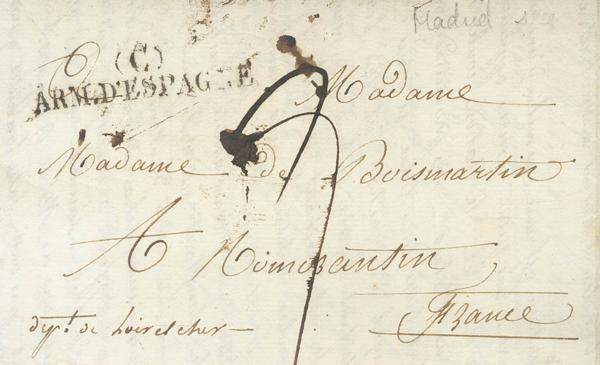 Madrid
(C)
ARM.D'ESPAGNE
Madame
Madame de Boismartin
A Romorantin
France
dept. de loir et cher